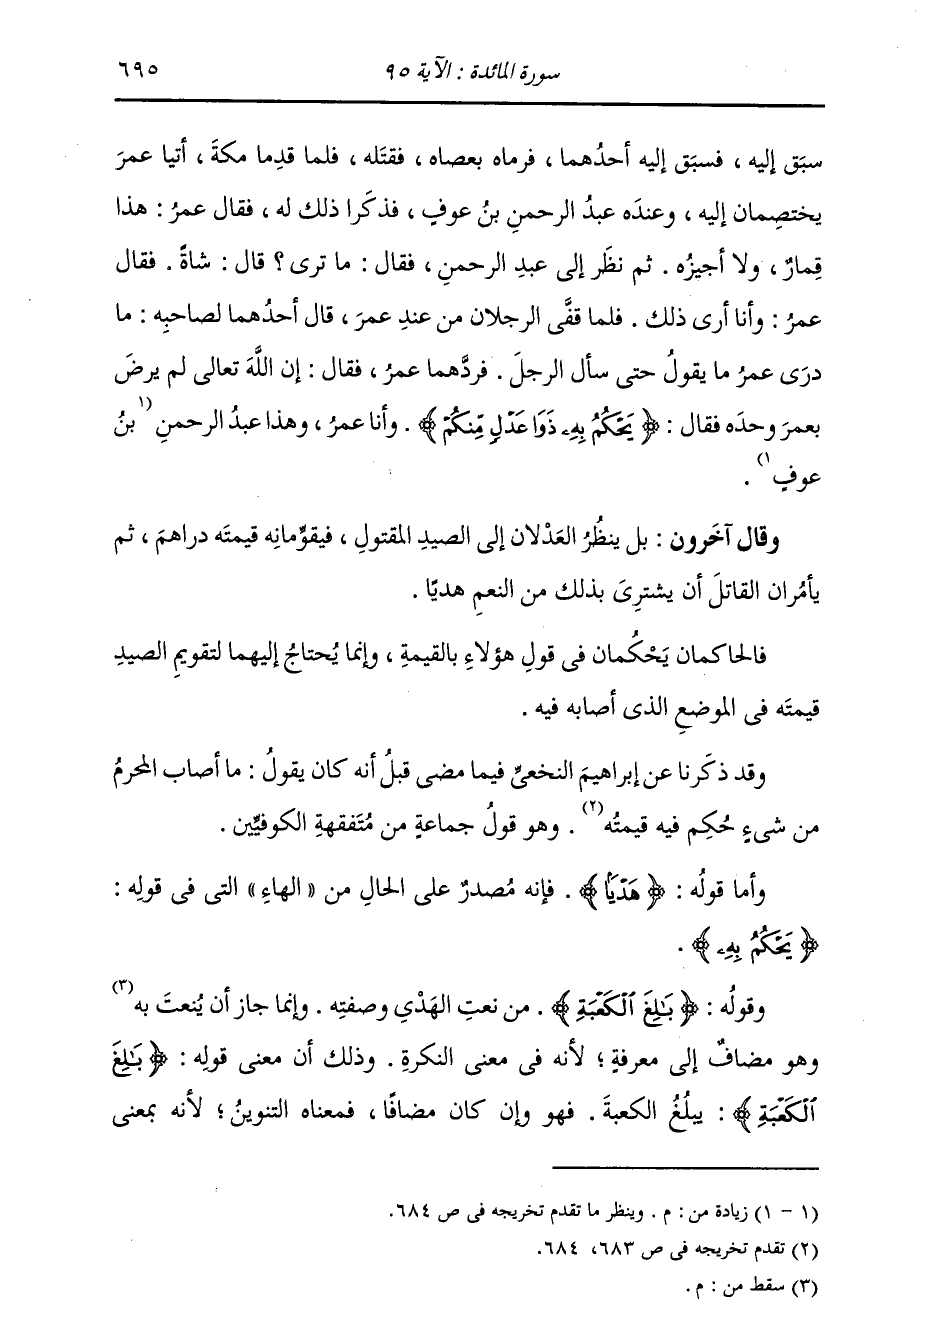 سورة المائدة : الآية ٩٥
٦٩٥
سبَق إليه ، فسبَق إليه أحدُهما ، فرماه بعصاه ، فقتَله ، فلما قدِما مكةَ ، أتيا عمرَ
يختصِمان إليه ، وعندَه عبدُ الرحمنِ بنُ عوفٍ ، فذكَرا ذلك له ، فقال عمرُ : هذا
قِمارٌ ، ولا أجيزُه . ثم نظَر إلى عبدِ الرحمنِ ، فقال : ما ترى ؟ قال : شاةً . فقال
عمرُ : وأنا أرى ذلك . فلما قفَّى الرجلان من عندِ عمرَ ، قال أحدُهما لصاحبِه : ما
درَى عمرُ ما يقولُ حتى سأل الرجلَ . فردَّهما عمرُ ، فقال : إن اللَّهَ تعالى لم يرضَ
بعمرَ وحدَه فقال : ﴿ يَحْكُمُ بِهِۦ ذَوَا عَدْلٍ مِّنكُمْ ﴾ . وأنا عمرُ ، وهذا عبدُ الرحمنِ (١ بنُ
عوفٍ ١) .
وقال آخَرون : بل ينظُرُ العَدْلان إلى الصيدِ المقتولِ ، فيقوِّمانِه قيمتَه دراهمَ ، ثم
يأمُران القاتلَ أن يشترِىَ بذلك من النعمِ هديًا .
فالحاكمان يَحْكُمان فى قولِ هؤلاءِ بالقيمةِ ، وإنما يُحتاجُ إليهما لتقويمِ الصيدِ
قيمتَه فى الموضعِ الذى أصابه فيه .
وقد ذكَرنا عن إبراهيمَ النخعىِّ فيما مضى قبلُ أنه كان يقولُ : ما أصاب المحرمُ
من شىءٍ حُكِم فيه قيمتُه (٢) . وهو قولُ جماعةٍ من مُتَفقهةِ الكوفيِّين .
وأما قولُه : ﴿ هَدْيًا ﴾ . فإنه مُصدرٌ على الحالِ من « الهاءِ » التى فى قولِه :
﴿ يَحْكُمُ بِهِۦ ﴾ .
وقولُه : ﴿ بَـٰلِغَ ٱلْكَعْبَةِ ﴾ . من نعتِ الهَدْيِ وصفتِه . وإنما جاز أن يُنعتَ به (٣)
وهو مضافٌ إلى معرفةٍ ؛ لأنه فى معنى النكرةِ . وذلك أن معنى قولِه : ﴿ بَـٰلِغَ
ٱلْكَعْبَةِ ﴾ : يبلُغُ الكعبةَ . فهو وإن كان مضافًا ، فمعناه التنوينُ ؛ لأنه بمعنى
(١ - ١) زيادة من : م . وينظر ما تقدم تخريجه فى ص ٦٨٤.
(٢) تقدم تخريجه فى ص ٦٨٣، ٦٨٤.
(٣) سقط من : م .